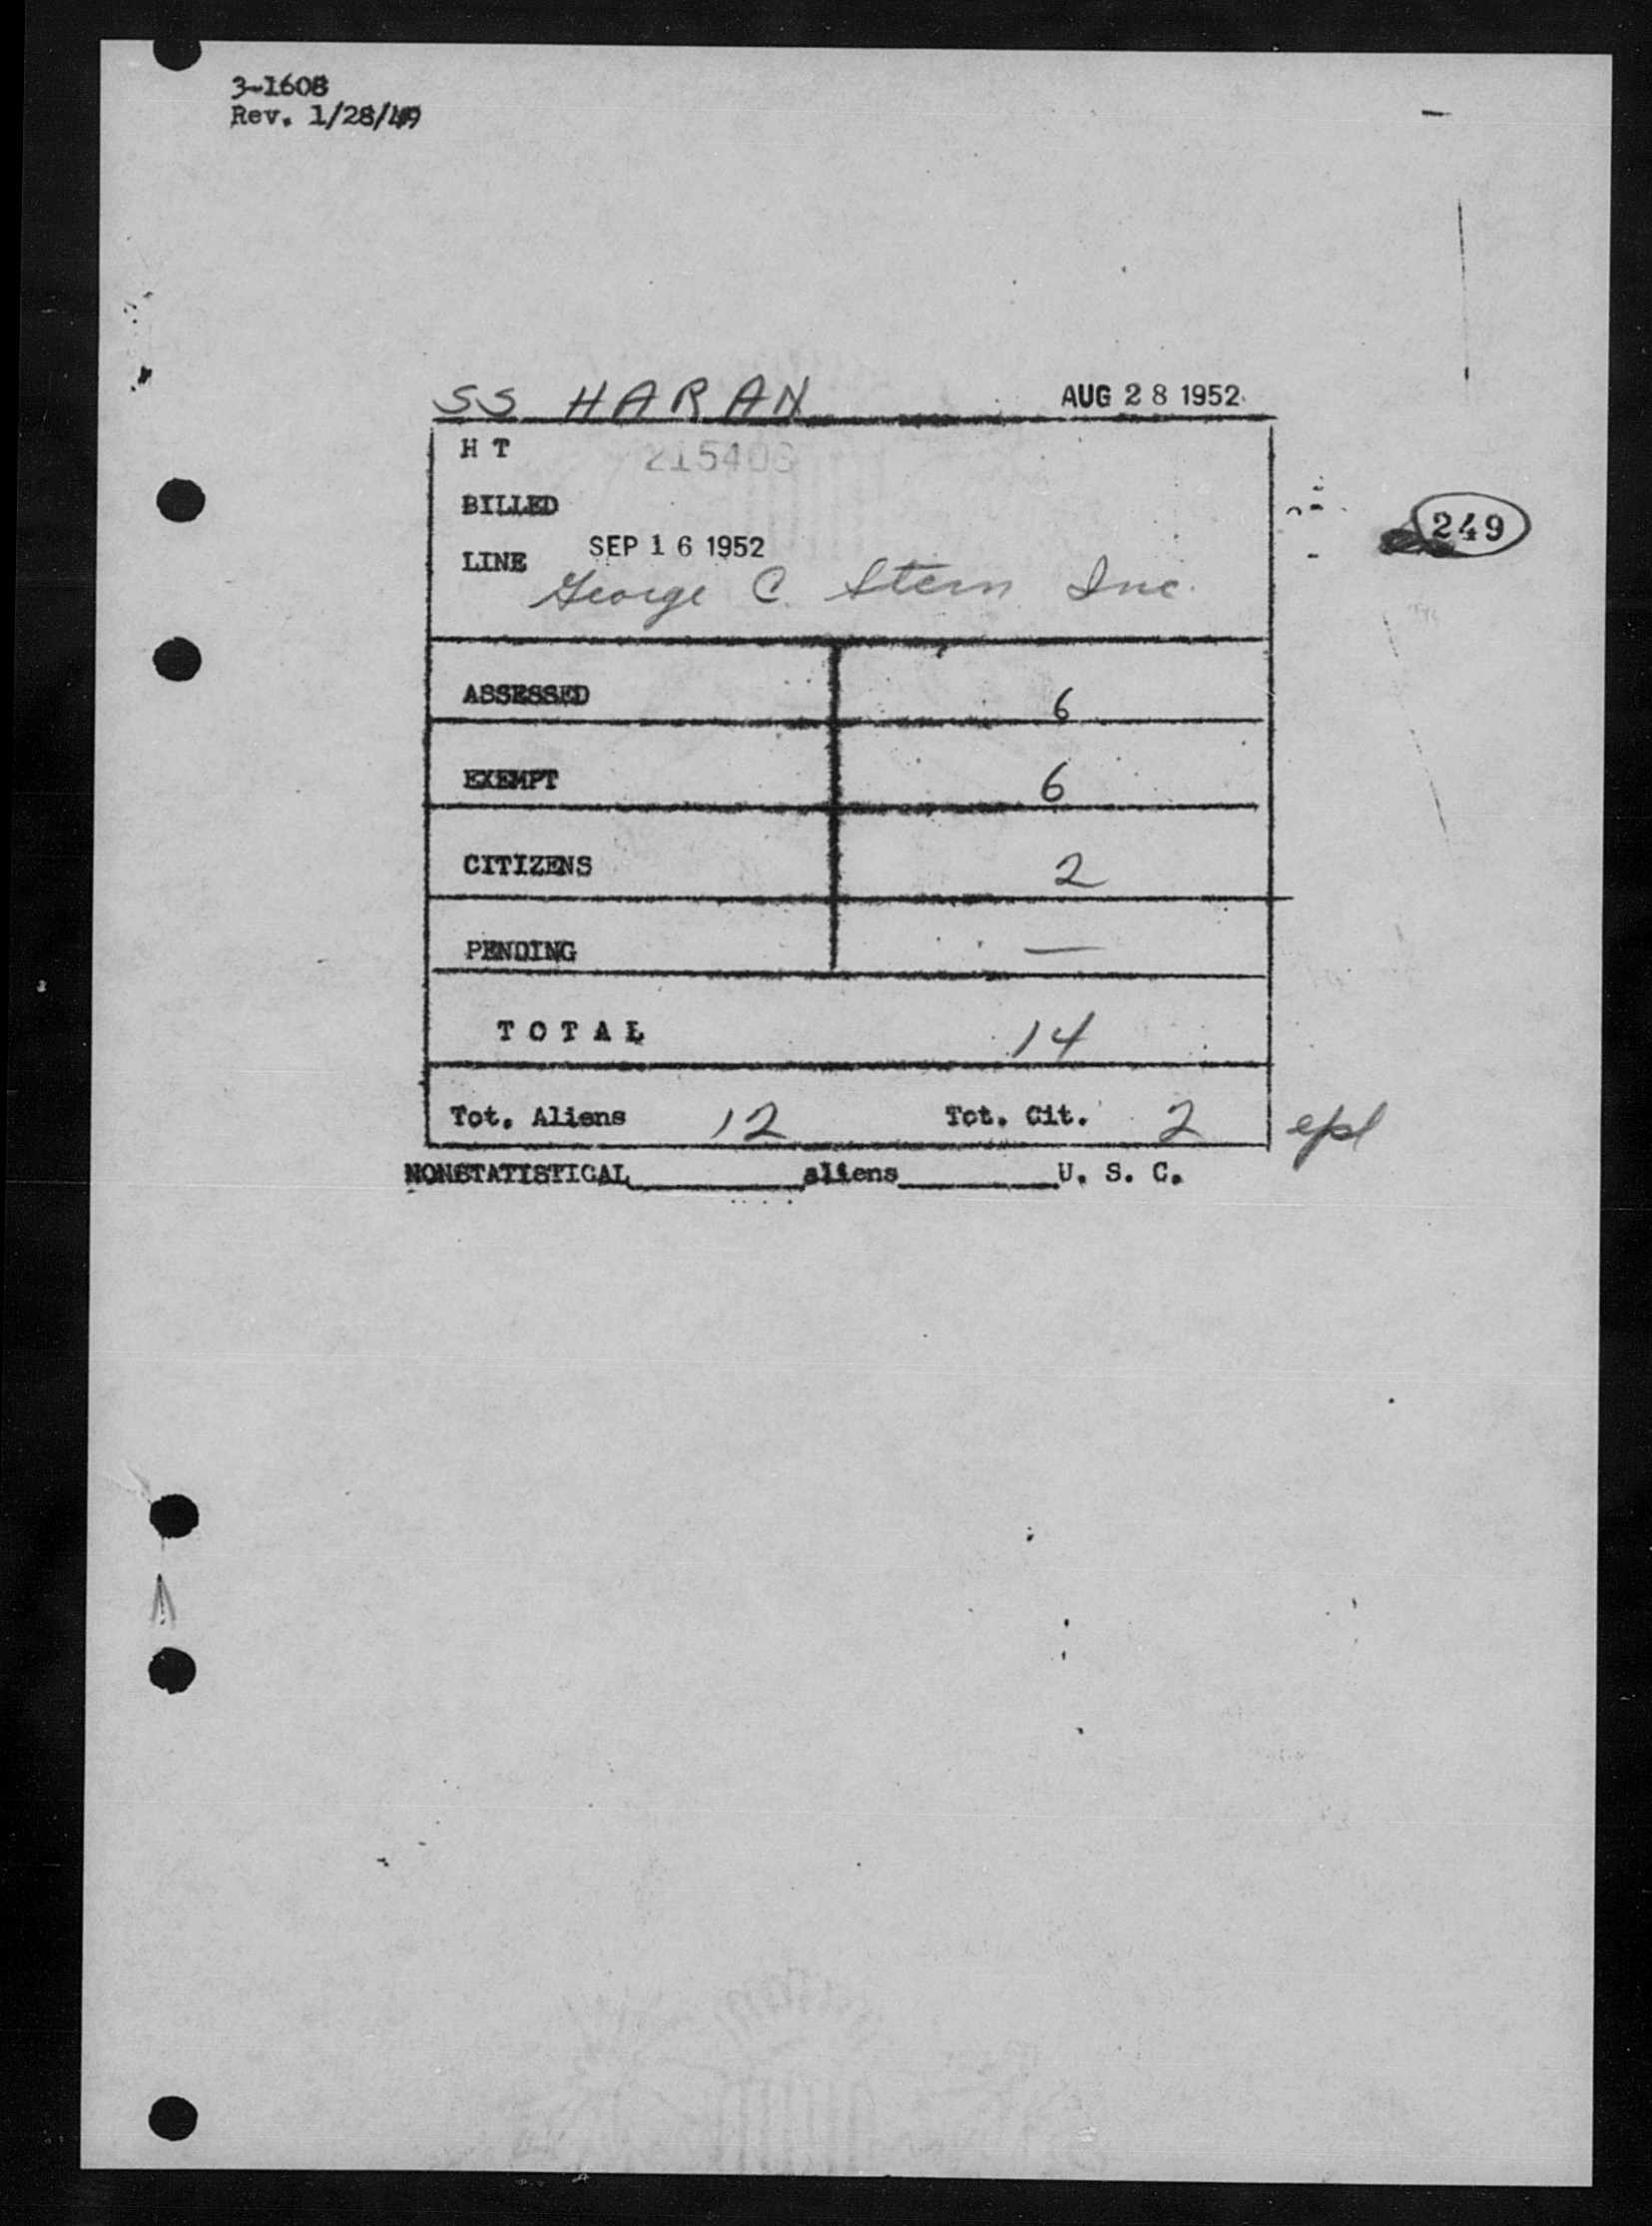 3-1608
Rev. 1/28/49
SS HARAN AUG 28 1952
H T 215403
BILLED
SEP 16 1952
LINE
George C. Stern Inc.
249
ASSESSED 6
EXEMPT 6
CITIZENS 2
PENDING —
TOTAL 14
Tot. Aliens 12 Tot. Cit. 2 epl
NONSTATISTICAL________aliens________U. S. C.